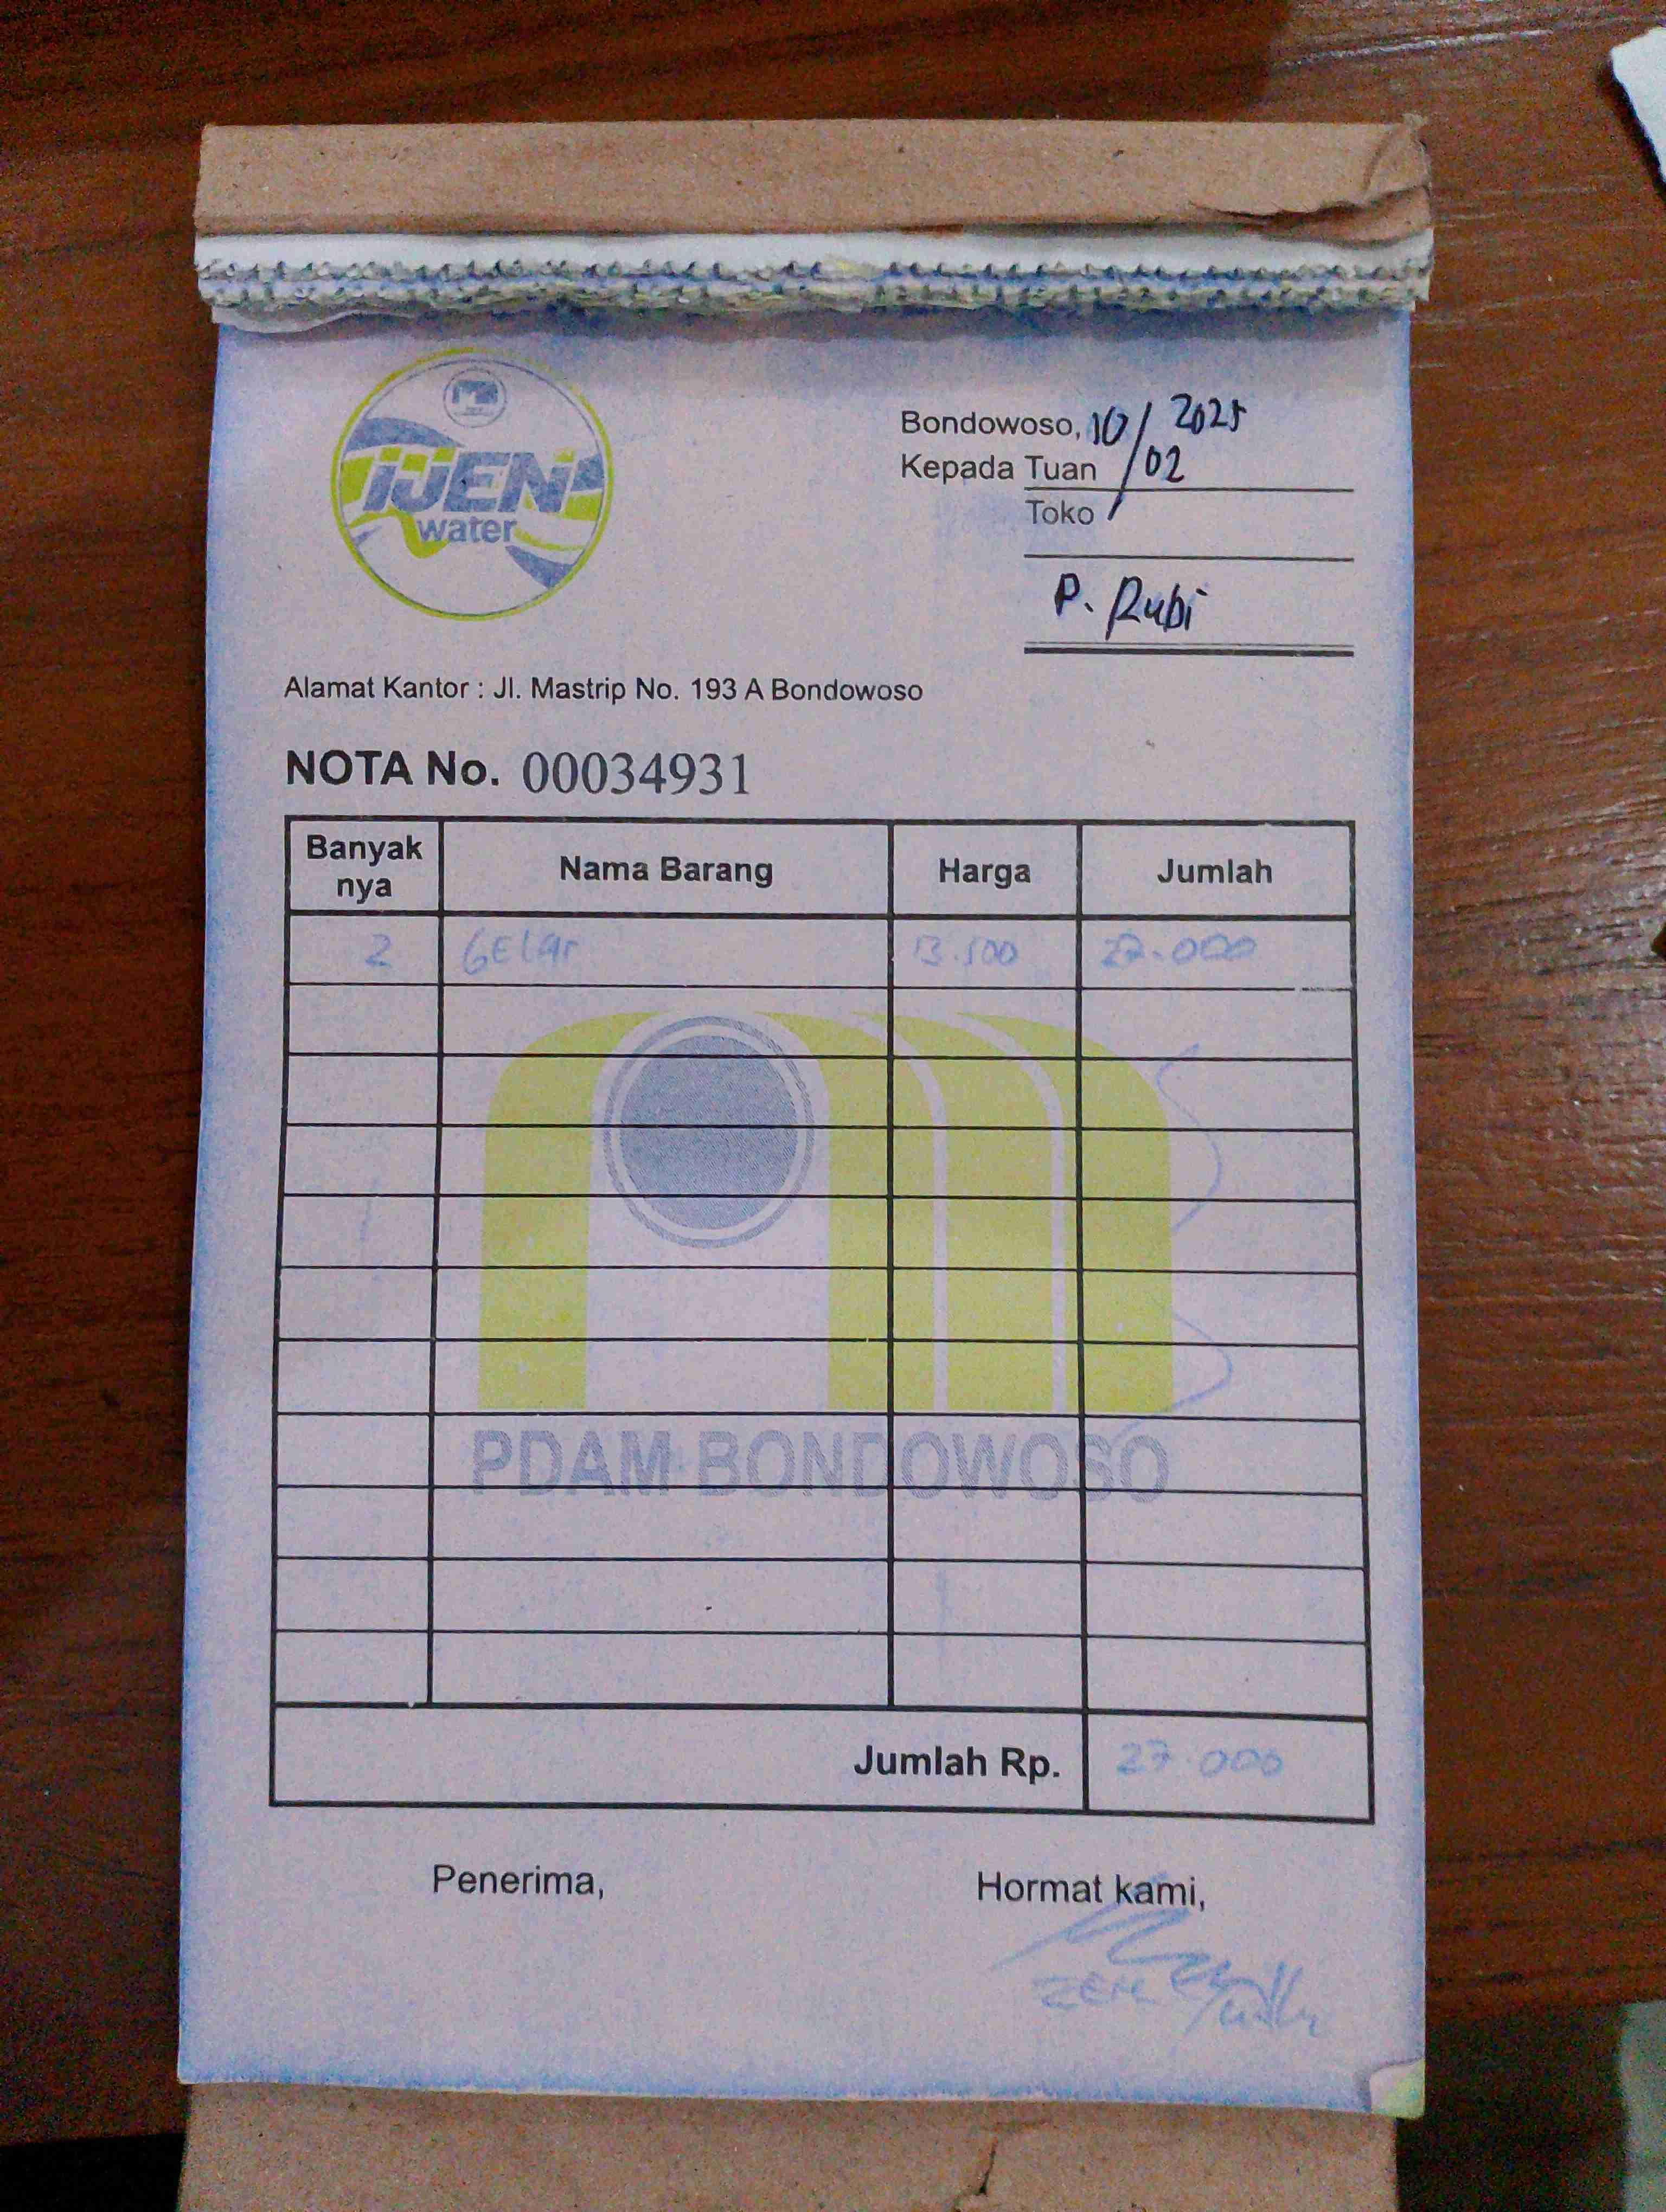 IJEN
water
Bondowoso, 10/02 2025
Kepada Tuan
Toko
P. Rubi
Alamat Kantor : Jl. Mastrip No. 193 A Bondowoso
NOTA No. 00034931
Banyak nya Nama Barang Harga Jumlah
2 GElas 13.500 27.000
PDAM BONDOWOSO
Jumlah Rp. 27.000
Penerima, Hormat kami,